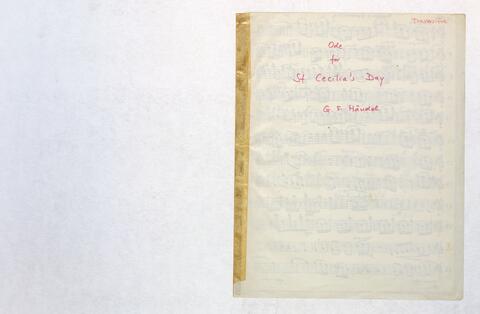 Traversière
Ode
for
St Cecilia's Day
G. F. Händel